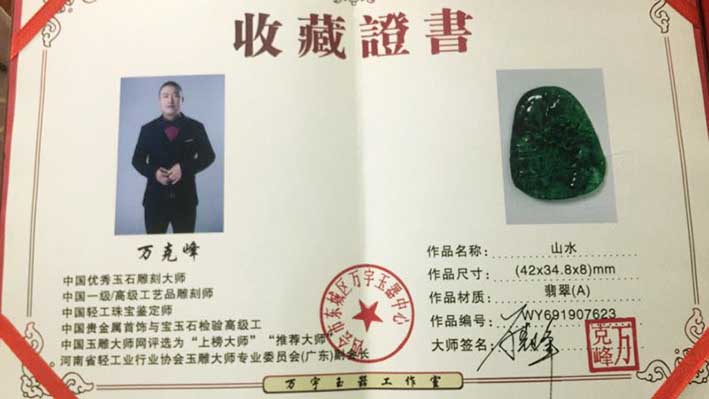 收藏證書
万克峰
中国优秀玉石雕刻大师
中国一级/高级工艺品雕刻师
中国轻工珠宝鉴定师
中国贵金属首饰与宝玉石检验高级工
中国玉雕大师网评选为“上榜大师”“推荐大师”
河南省轻工业行业协会玉雕大师专业委员会(广东)副会长
会市东城区万字玉器中心
作品名称: 山水
作品尺寸: (42x34.8x8)mm
作品材质: 翡翠(A)
作品编号: WY691907623
大师签名: 万克峰
万克峰
万字玉器工作室